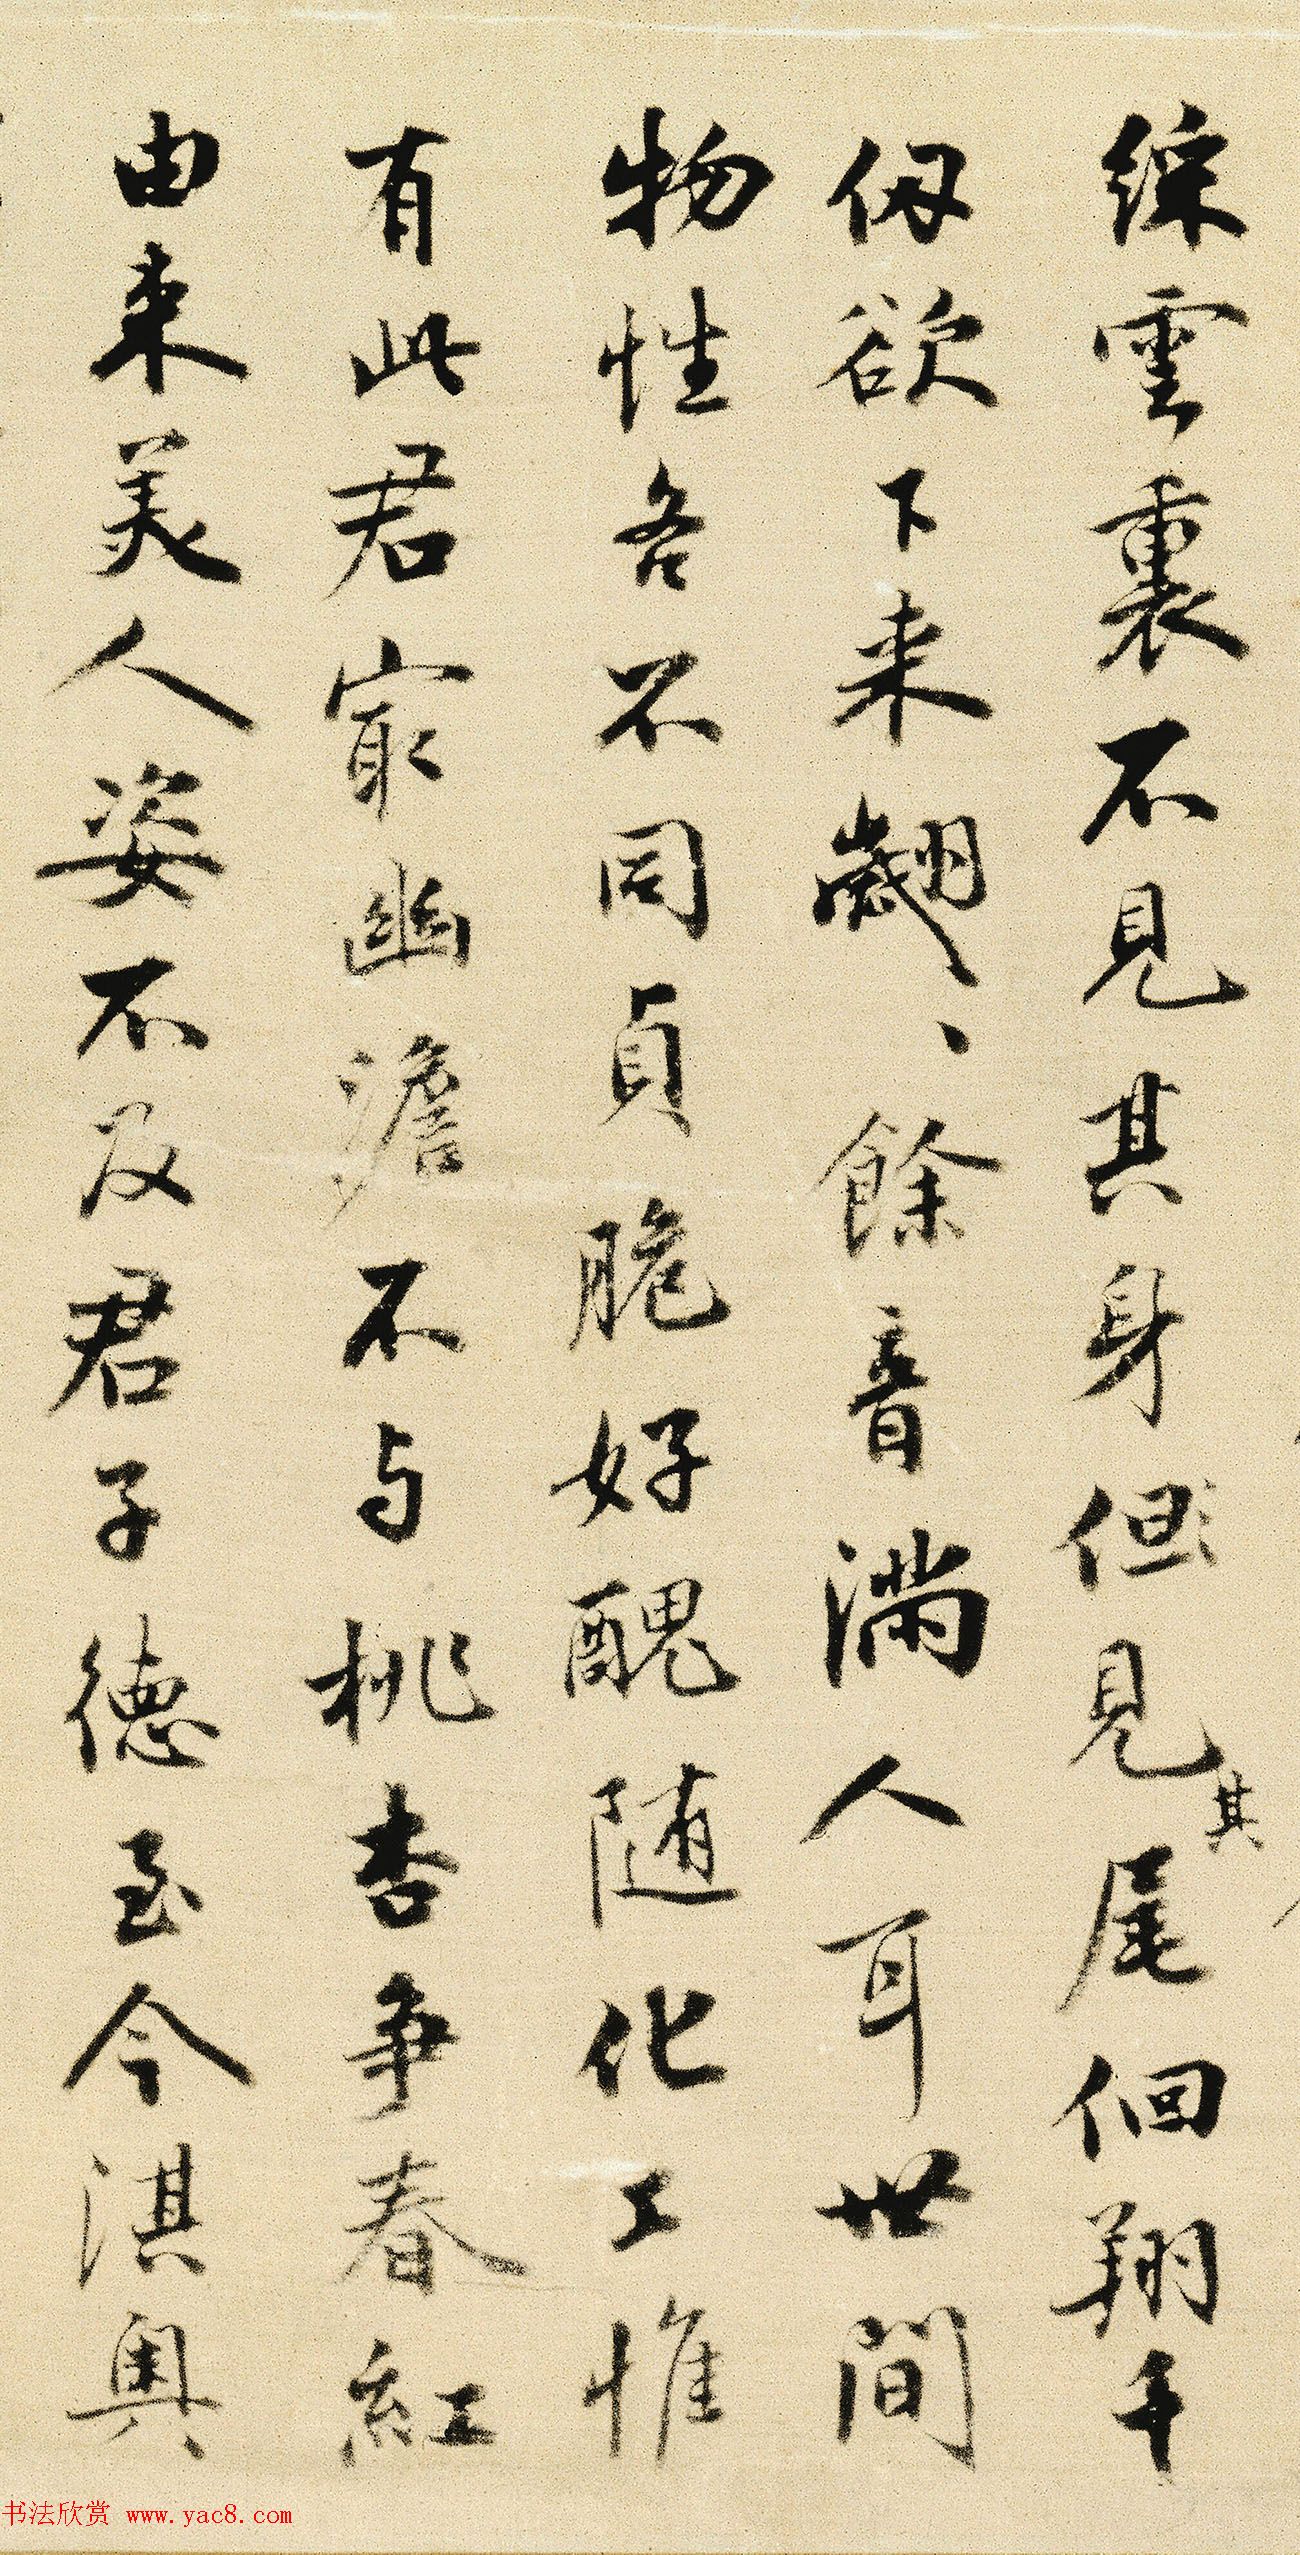 綵雲裏不見其身但見其尾佪翔千
仞欲下来翽、餘音滿人耳世間
物性各不同貞脆好醜随化工惟
有此君㝡幽澹不与桃杏争春紅
由来美人姿不及君子德至今淇奥
书法欣赏 www.yac8.com